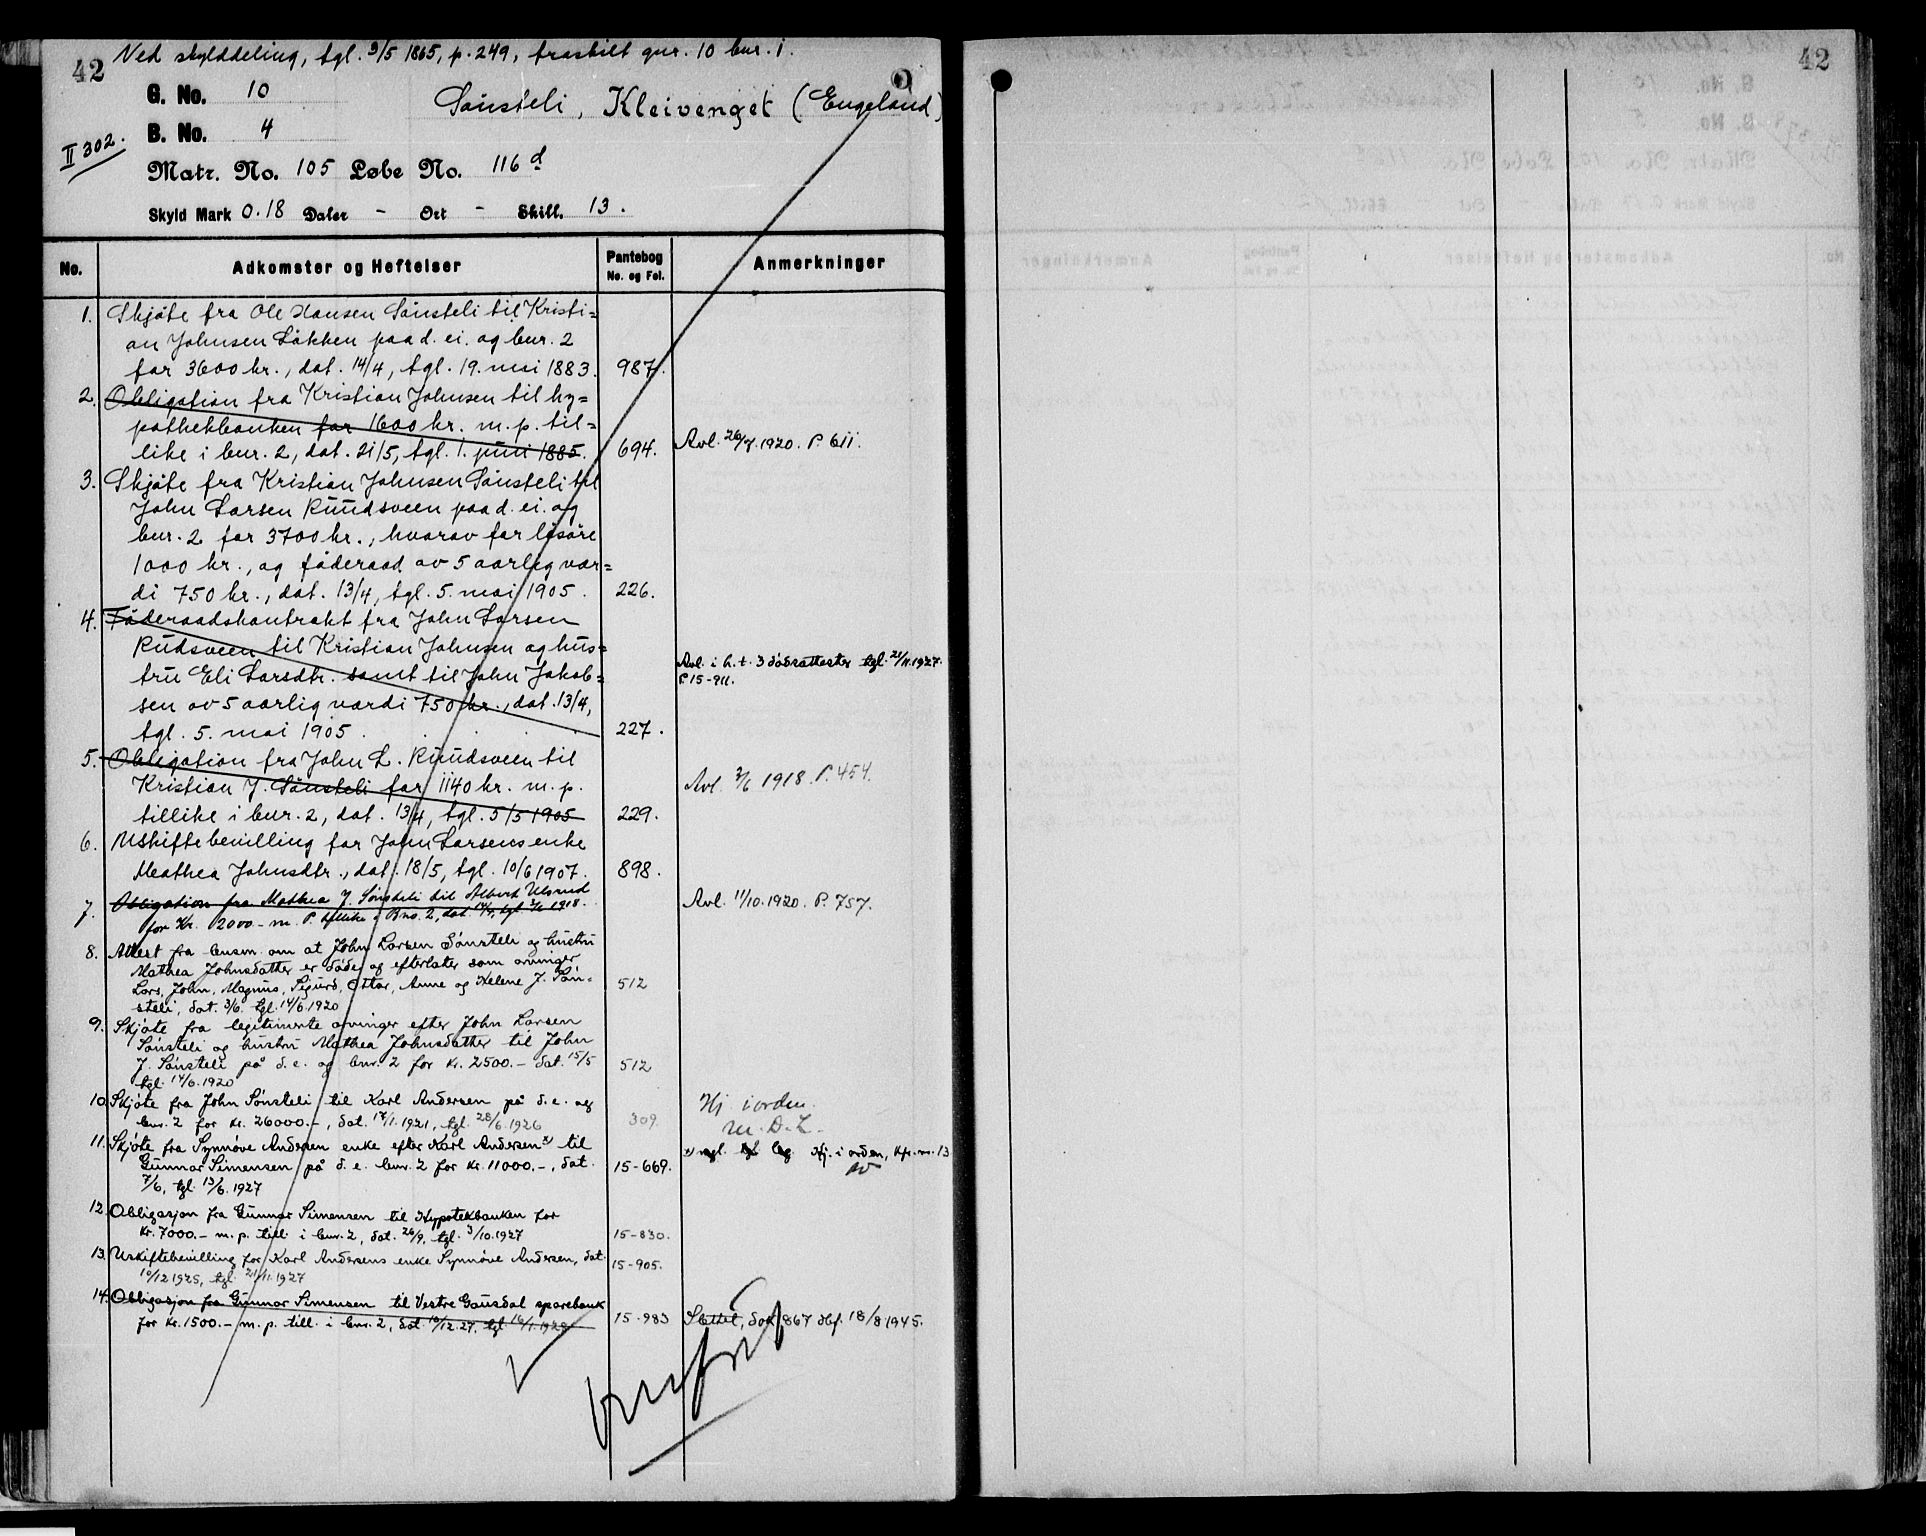 Ved skylddeling, tgl. 9/5 1865, p. 249, fraskilt gnr. 10 bnr. 1.
42
G. No. 10
Sønsteli, Kleivenget (Engeland)
B. No. 4
II 302.
Matr. No. 105 Løbe No. 116 d
Skyld Mark 0.18 Daler - Ort - Skill. 13.
No. Adkomster og Heftelser Pantebog No. og Fol. Anmerkninger
1. Skjøte fra Ole Hansen Sønsteli til Kristi=
an Johnsen Løkken paa d. ei. og bnr. 2
for 3600 kr., dat. 14/4, tgl. 19. mai 1883. 987.
2. Obligation fra Kristian Johnsen til hy=
pothekbanken for 1600 kr. m. p. til=
like i bnr. 2, dat. 21/5, tgl. 1. juni 1885. 694. Avl. 26/7.1920. P. 611.
3. Skjøte fra Kristian Johnsen Sønsteli til
John Larsen Ruudsveen paa d. ei. og
bnr. 2 for 3700 kr., hvorav for løsøre
1000 kr., og føderaad av 5 aarlig vær=
di 750 kr., dat. 13/4, tgl. 5. mai 1905. 226.
4. Føderaadskontrakt fra John Larsen
Rudsveen til Kristian Johnsen og hus=
tru Eli Larsdtr. samt til John Jakob=
sen av 5 aarlig værdi 750 kr., dat. 13/4,
tgl. 5. mai 1905. 227.
Avl. i h. t. 3 dødsattester tgl. 21/11.1927.
P. 15-911.
5. Obligation fra John L. Ruudsveen til
Kristian J. Sønsteli for 1140 kr. m. p.
tillike i bnr. 2, dat. 13/4, tgl. 5/5 1905 229. Avl. 3/6 1918. P. 454.
6. Uskiftebevilling for John Larsens enke
Mathea Johnsdtr., dat. 18/5, tgl. 10/6 1907. 898.
7. Obligation fra Mathea J. Sønsteli til Albert Ulsrud
for Kr. 2000 - m. P. tillike i Bno. 2, dat. 14/5, tgl. 3/6 1918. Avl. 11/10.1920. P. 757.
8. Attest fra lensm. om at John Larsen Sønsteli og hustru
Mathea Johnsdatter er døde og efterlater som arvinger
Lars, John, Magnus, Sigurd, Ottar, Anne og Helene J. Søn-
steli, dat. 3/6. tgl. 14/6.1920 512
9. Skjøte fra legitimerte arvinger efter John Larsen
Sønsteli og hustru Mathea Johnsdatter til John
J. Sønsteli på d. e. og bnr. 2 for kr. 2500.- dat. 15/5
tgl. 14/6.1920 512
10. Skjøte fra John Sønsteli til Karl Andersen på d. e. og
bnr. 2 for kr. 26000.-, dat. 17/1.1921, tgl. 28/6.1926 309. Hj. i orden.
11. Skjøte fra Synnøve Andersen enke efter Karl Andersen x) til
Gunnar Simensen på d. e. bnr. 2 for kr. 11000.-, dat.
7/6, tgl. 13/6.1927 15-669. Hj. i orden, kfr. nr. 13
12. Obligasjon fra Gunnar Simensen til Hypotekbanken for
kr. 7000.- m. p. till. i bnr. 2, dat. 26/9, tgl. 3/10.1927 15-830.
13. Uskiftebevilling for Karl Andersens enke Synnøve Andersen, dat.
10/12 1925, tgl. 21/11.1927 15-905.
14. Obligasjon fra Gunnar Simensen til Vestre Gausdal sparebank
for kr. 1500.- m. p. till. i bnr. 2, dat. 10/12.27, tgl. 16/1.1928 15-983 Slettet, dok 867 dbf. 18/8 1945.
42